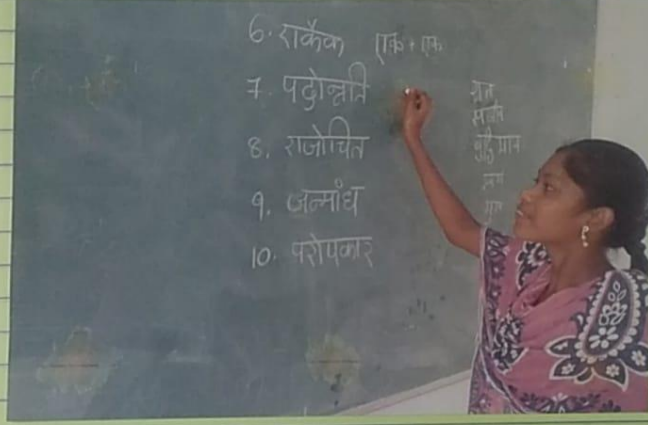 6. एकैक एक + एक
7. पदोन्नति
8. राजोचित
9. जन्मांध
10. परोपकार
बुद्धिमान